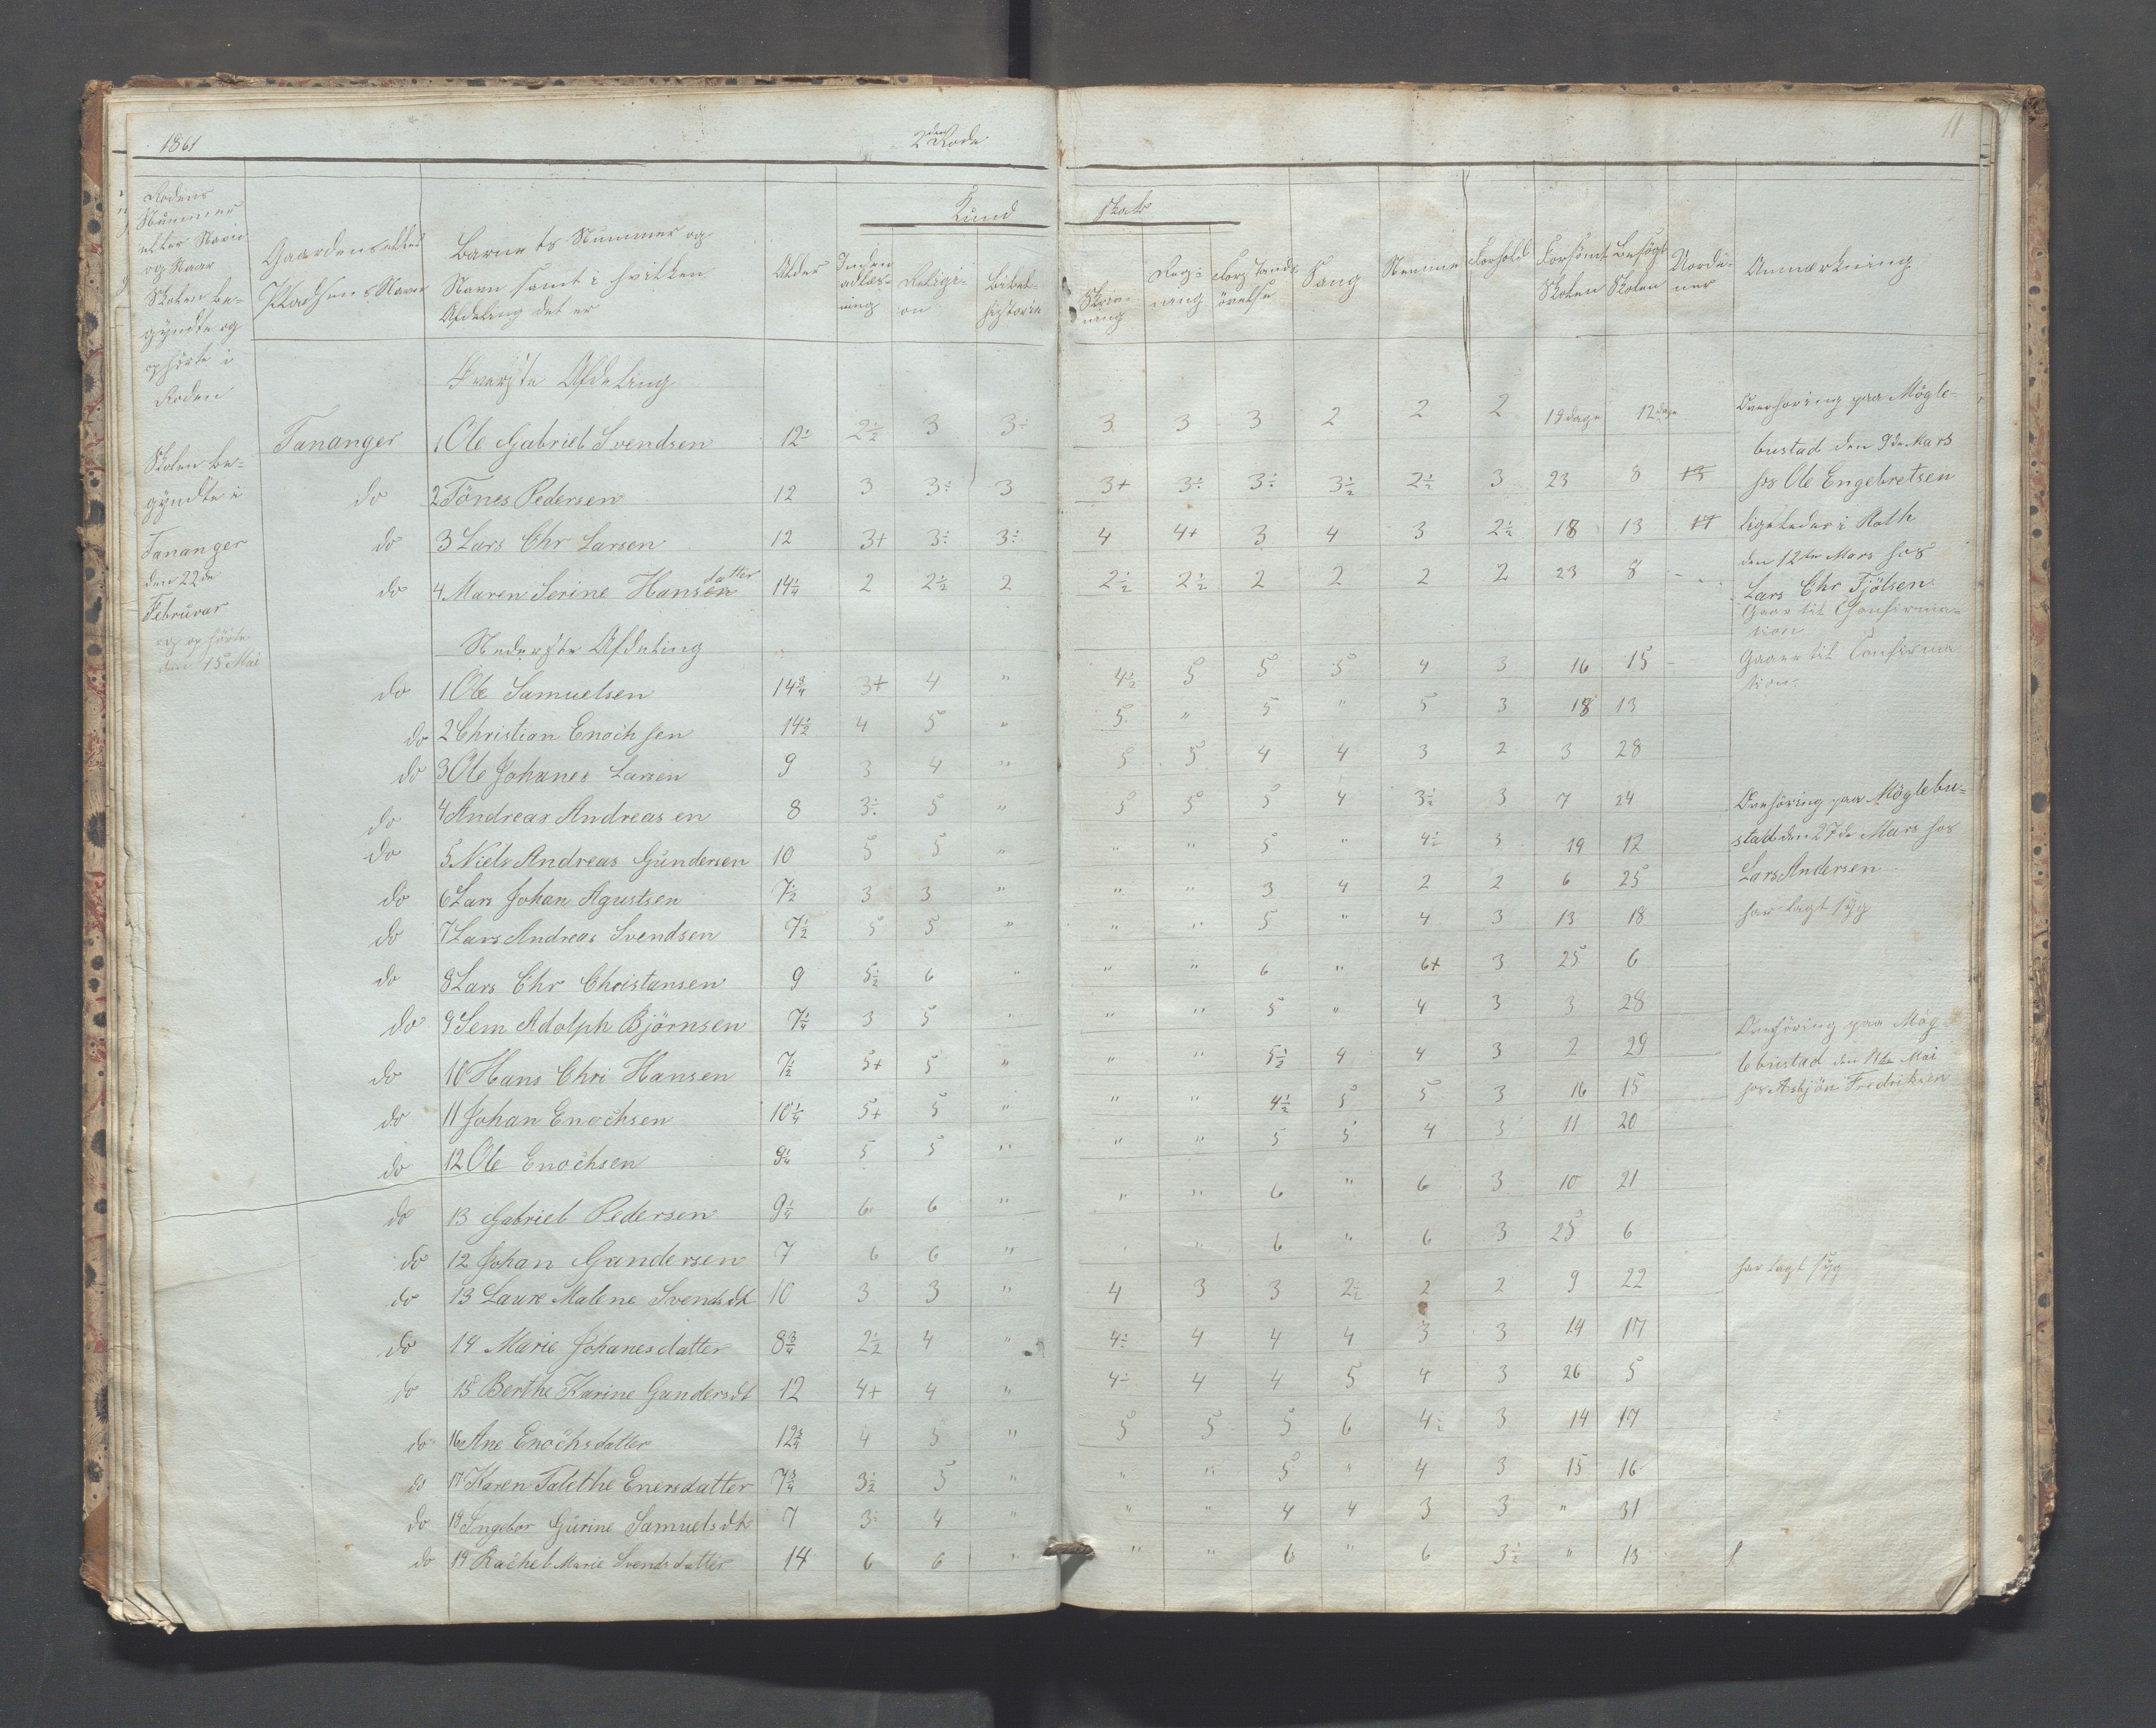 1861 2den Rode 11
Rodens Nummer eller Navn og Naar Skolen be-gyndte og ophörte i Roden
Gaardens eller Pladsens Navn
Barnets Nummer og Navn samt i hvilken Afdeling det er
Alder
Inden adlæs-ning
Kund skab
Religi-on
Bibel-historie
Skriv-ning
Reg-ning
Forstands övelse
Sang
Nemme
Forhold
Forsömt Skolen
Besögt Skolen
Anmærkning
Överste Afdeling
Skolen be-gyndte i Tananger den 22de Februar og ophörte den 15 Mai
Tananger 1 Ole Gabriel Svendsen 12÷ 2½ 3 3÷ 3 3 3 2 2 2 19 dage 12 dage
do 2 Tönes Pedersen 12 3 3÷ 3 3+ 3÷ 3÷ 3½ 2½ 3 23 8 13
do 3 Lars Chr Larsen 12 3+ 3÷ 3÷ 4 4+ 3 4 3 2½ 18 13 17
do 4 Maren Serine Hansen datter 14¼ 2 2½ 2 2½ 2½ 2 2 2 2 23 8 -
Nederste Afdeling
do 1 Ole Samuelsen 14¾ 3+ 4 " 4½ 5 5 5 4 3 16 15
do 2 Christian Enochsen 14½ 4 5 " 5 " 5 " 5 3 18 13
do 3 Ole Johanes Larsen 9 3 4 " 5 5 4 4 3 2 3 28
do 4 Andreas Andreasen 8 3÷ 5 " 5 5 5 4 3½ 3 7 24
do 5 Niels Andreas Gundersen 10 5 5 " " " 5 " 4½ 3 19 12
do 6 Lars Johan Agustsen 7½ 3 3 " " " 3 4 2 2 6 25
do 7 Lars Andreas Svendsen 7½ 5 5 " " " 5 " 4 3 13 18
do 8 Lars Chr Christansen 9 5½ 6 " " " 6 " 6+ 3 25 6
do 9 Sem Adolph Björnsen 7¼ 3 5 " " " 5 " 4 3 3 28
do 10 Hans Chri Hansen 7½ 5+ 5 " " " 5½ 4 4 3 2 29
do 11 Johan Enochsen 10¼ 5+ 5 " " " 4½ 5 5 3 16 15
do 12 Ole Enochsen 9¼ 5 5 " " " 5 5 4 3 11 20
do 13 Gabriel Pedersen 9¼ 6 6 " " " 6 " 6 3 10 21
do 12 Johan Gundersen 7 6 6 " " " 6 " 6 3 25 6
do 13 Laure Malene Svendsdt 10 3 3 " 4 3 3 2½ 2 2 9 22
do 14 Marie Johanesdatter 8¾ 2½ 4 " 4÷ 4 4 4 3 3 14 17
do 15 Berthe Karine Gundersdt 12 4+ 4 " 4÷ 4 4 5 4 3 26 5
do 16 Ane Enochsdatter 12¾ 4 5 " 5 5 5 6 4½ 3 14 17
do 17 Karen Talethe Enersdatter 7¾ 3½ 5 " " " 5 " 4 3 15 16
do 18 Ingebor Gurine Samuelsdt 7 3÷ 4 " " " 4 4 3 3 " 31
do 19 Rachel Marie Svendsdatter 14 6 6 " " " 6 " 6 3½ " 13
Overhöring paa Mögle-
bustad den 9de Mars
hos Ole Engebretsen
ligeledes i Roth
den 12te Mars hos
Lars Chr Tjölsen
Gaar til Confirma-
tion
Gaar til Confirma
tion
Overhöring paa Möglebu-
stad den 27de Mars hos
Lars Andersen
har lagt syg
Overhöring paa Mög
lebustad den 11te Mai
hos Asbjön Fredriksen
har lagt syg